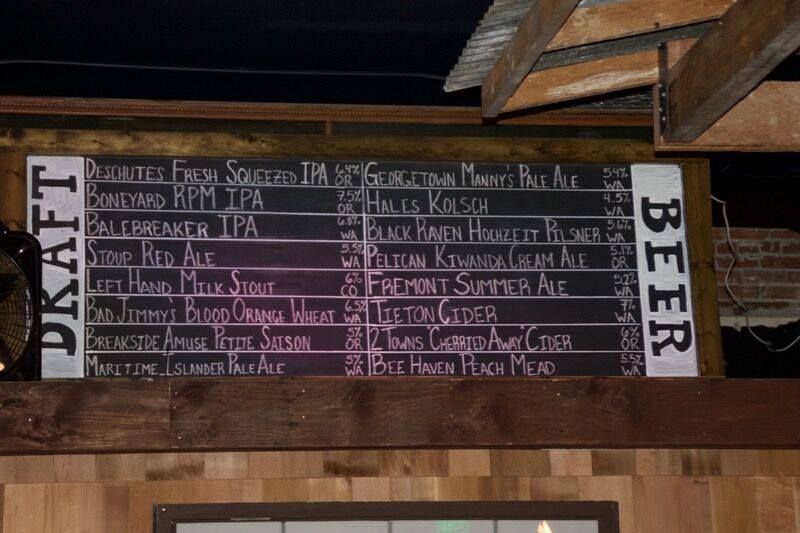 DRAFT
DESCHUTES FRESH SQUEEZED IPA 6.4% OR
BONEYARD RPM IPA 7.5% OR
BALEBREAKER IPA 6.8% WA
STOUP RED ALE 5.5% WA
LEFT HAND MILK STOUT 6% CO
BAD JIMMY'S BLOOD ORANGE WHEAT 6.5% WA
BREAKSIDE AMUSE PETITE SAISON 5% OR
MARITIME ISLANDER PALE ALE 5% WA
GEORGETOWN MANNY'S PALE ALE 5.4% WA
HALES KOLSCH 4.5% WA
BLACK RAVEN HOCHZEIT PILSNER 5.6% WA
PELICAN KIWANDA CREAM ALE 5.1% OR
FREMONT SUMMER ALE 5.2% WA
TIETON CIDER 7% WA
2 TOWNS "CHERRIED AWAY" CIDER 6% OR
BEE HAVEN PEACH MEAD 5.5% WA
BEER